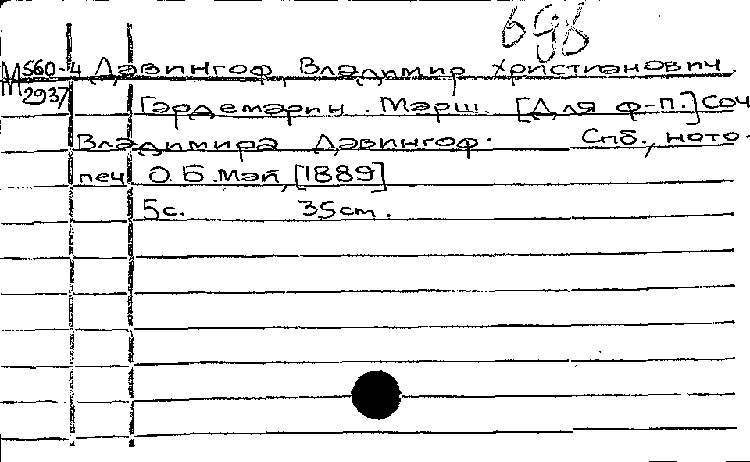 698
М 560-4 Давингоф, Владимир Христианович
2937
Гардемарин. Марш. [Для ф-п.] Соч.
Владимира Давингоф. Спб., ното-
печ. О. Б. Мэй, [1889]
5с. 35cm.